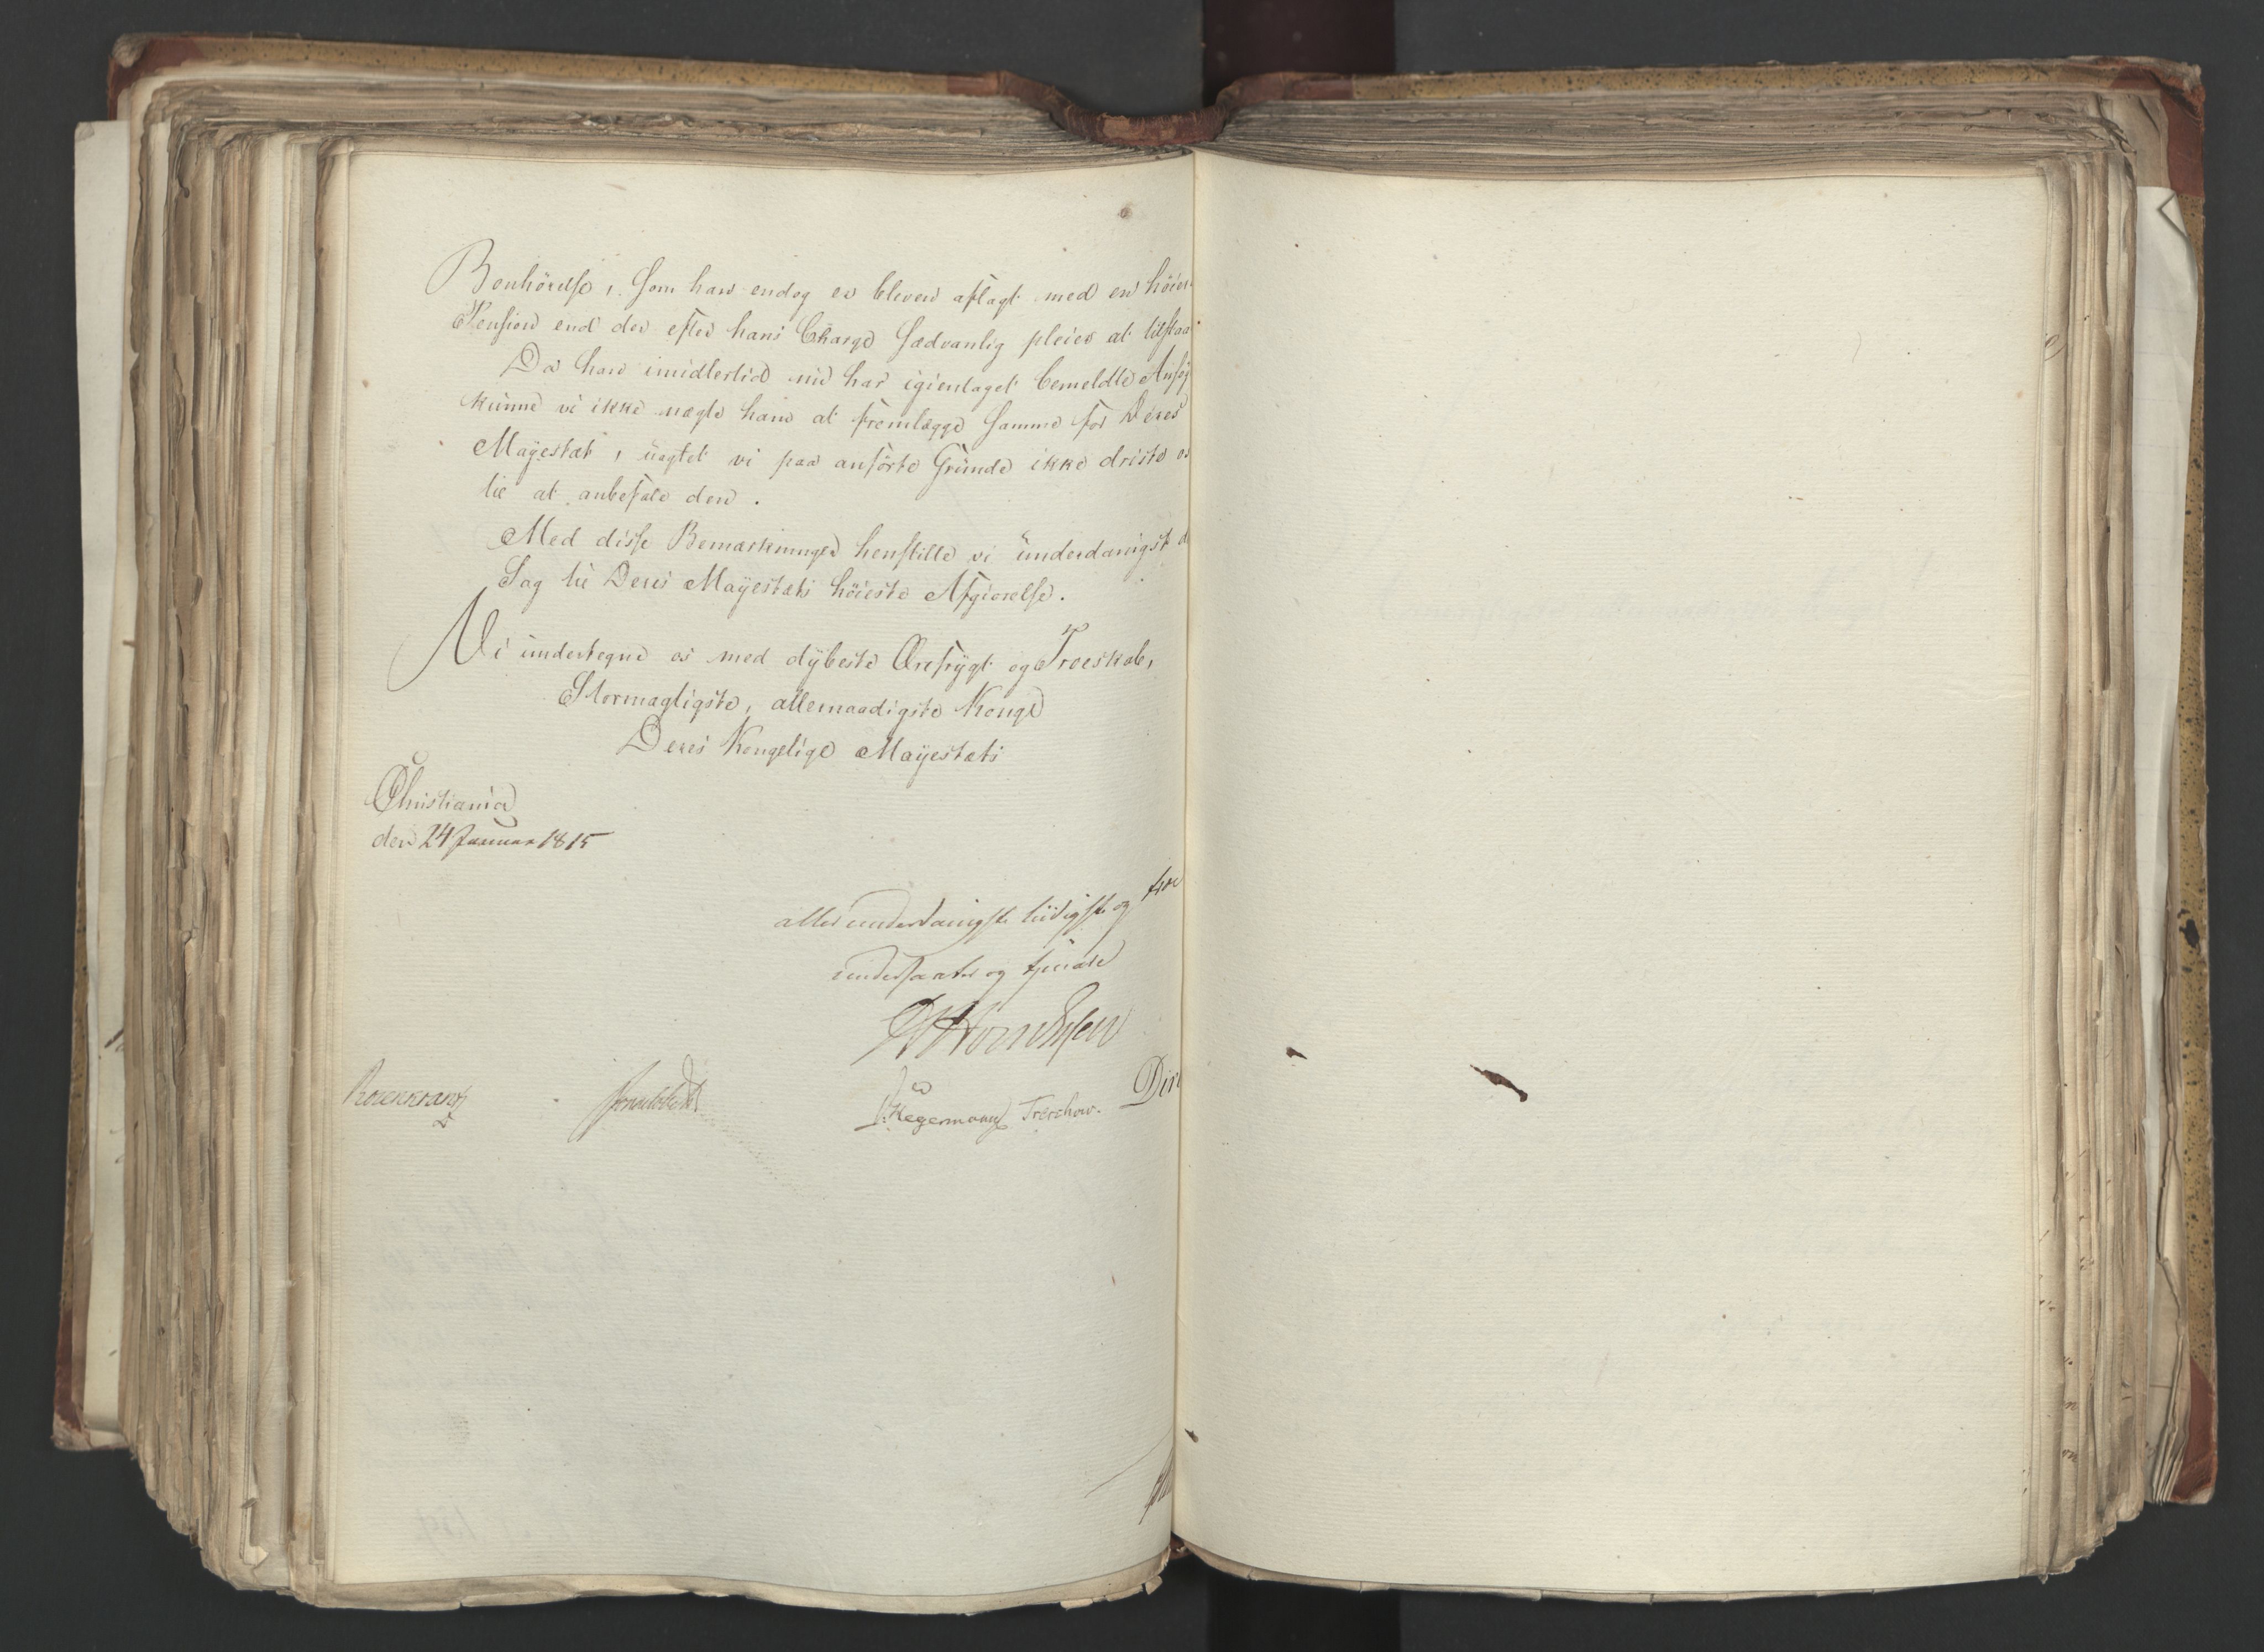 Bønhörelse, som han endog er bleven aflagt med en höier
Pension end der efter hans Charge sædvanlig pleier at tilstaa
Da han imidlertid nu har igientaget bemeldte Ansög
kunne vi ikke nægte ham at fremlægge samme for Deres
Mayestæt, uagtet vi paa anförte Grunde ikke driste os
til at anbefale den.
Med disse Bemærkninger henstille vi underdanigst d
Sag til Deres Mayestæts höieste Afgiörelse.
Vi undertegne os med dÿbeste Ærefrÿgt og Troeskab,
Stormægtigste, allernaadigste Konge
Deres Kongelige Maÿestæts
Christiania
den 24 Januar 1815
allerunderdanigste lÿdigste og troe
undersaatter og tjenere
Rosenkrantz
Hegermann Treschow.